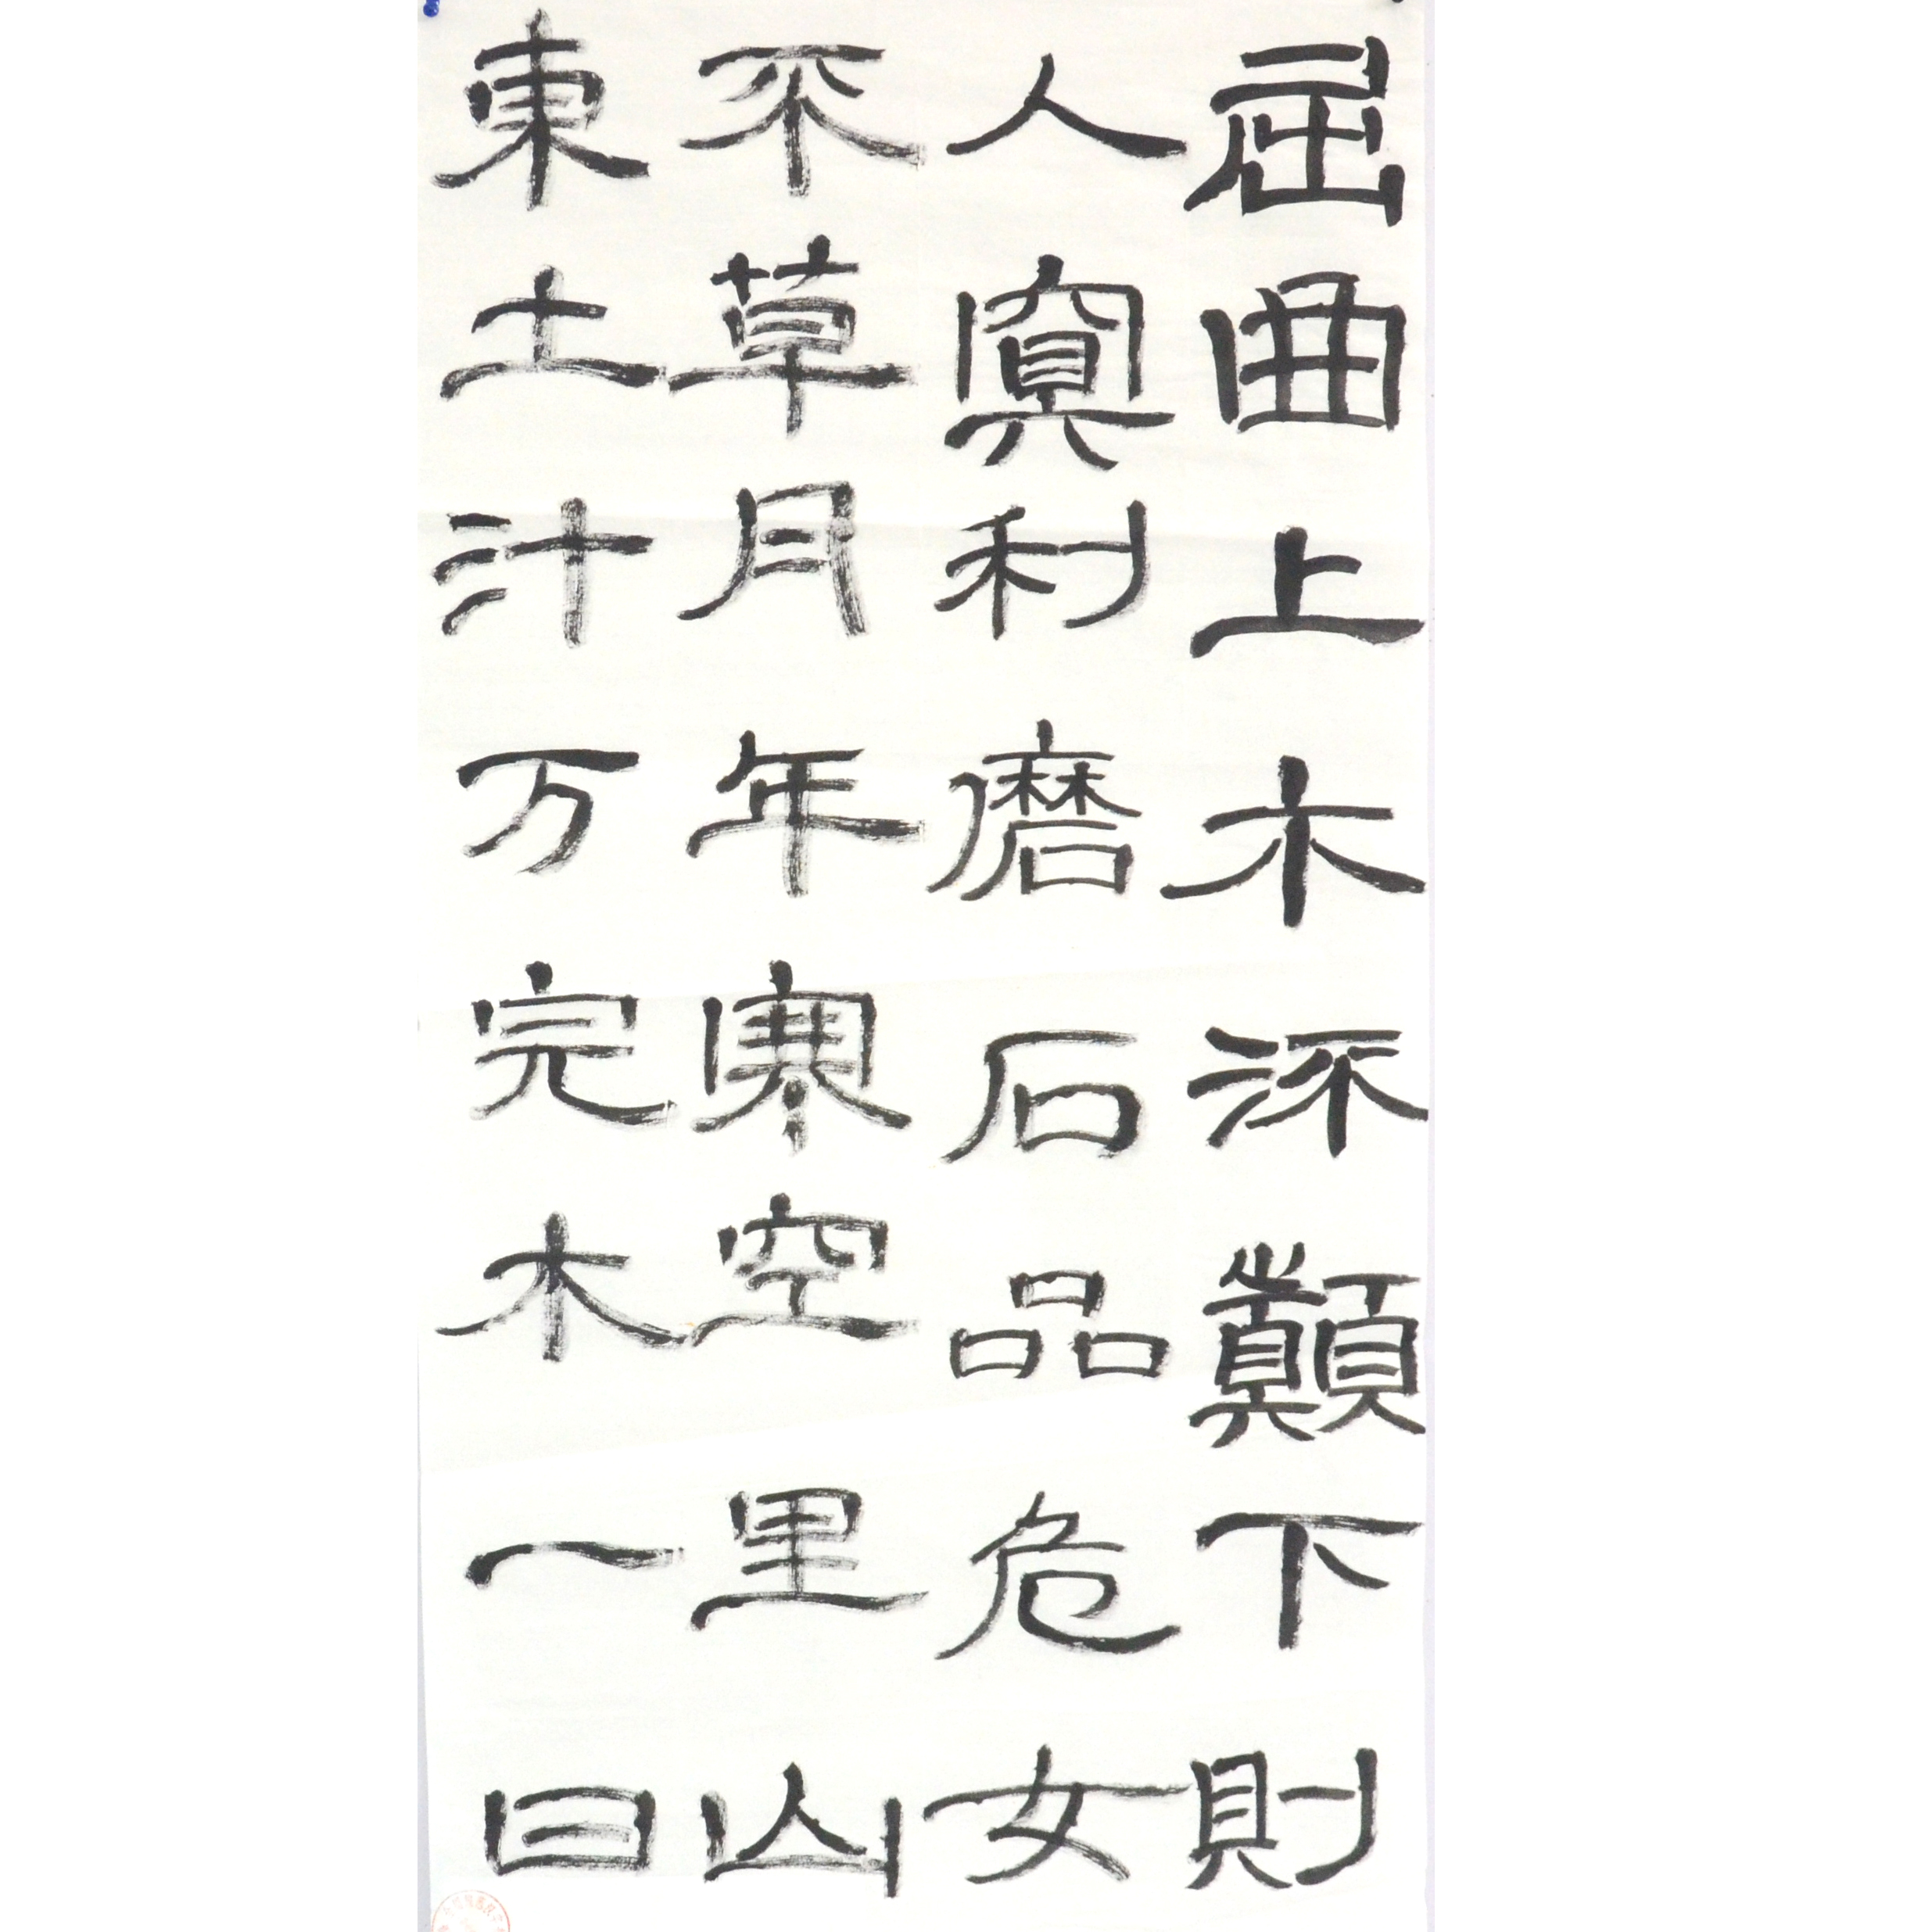 屈曲上木深顛下則
人寘利磨石品危女
不草月年寒空里山
東土汁万完木一曰